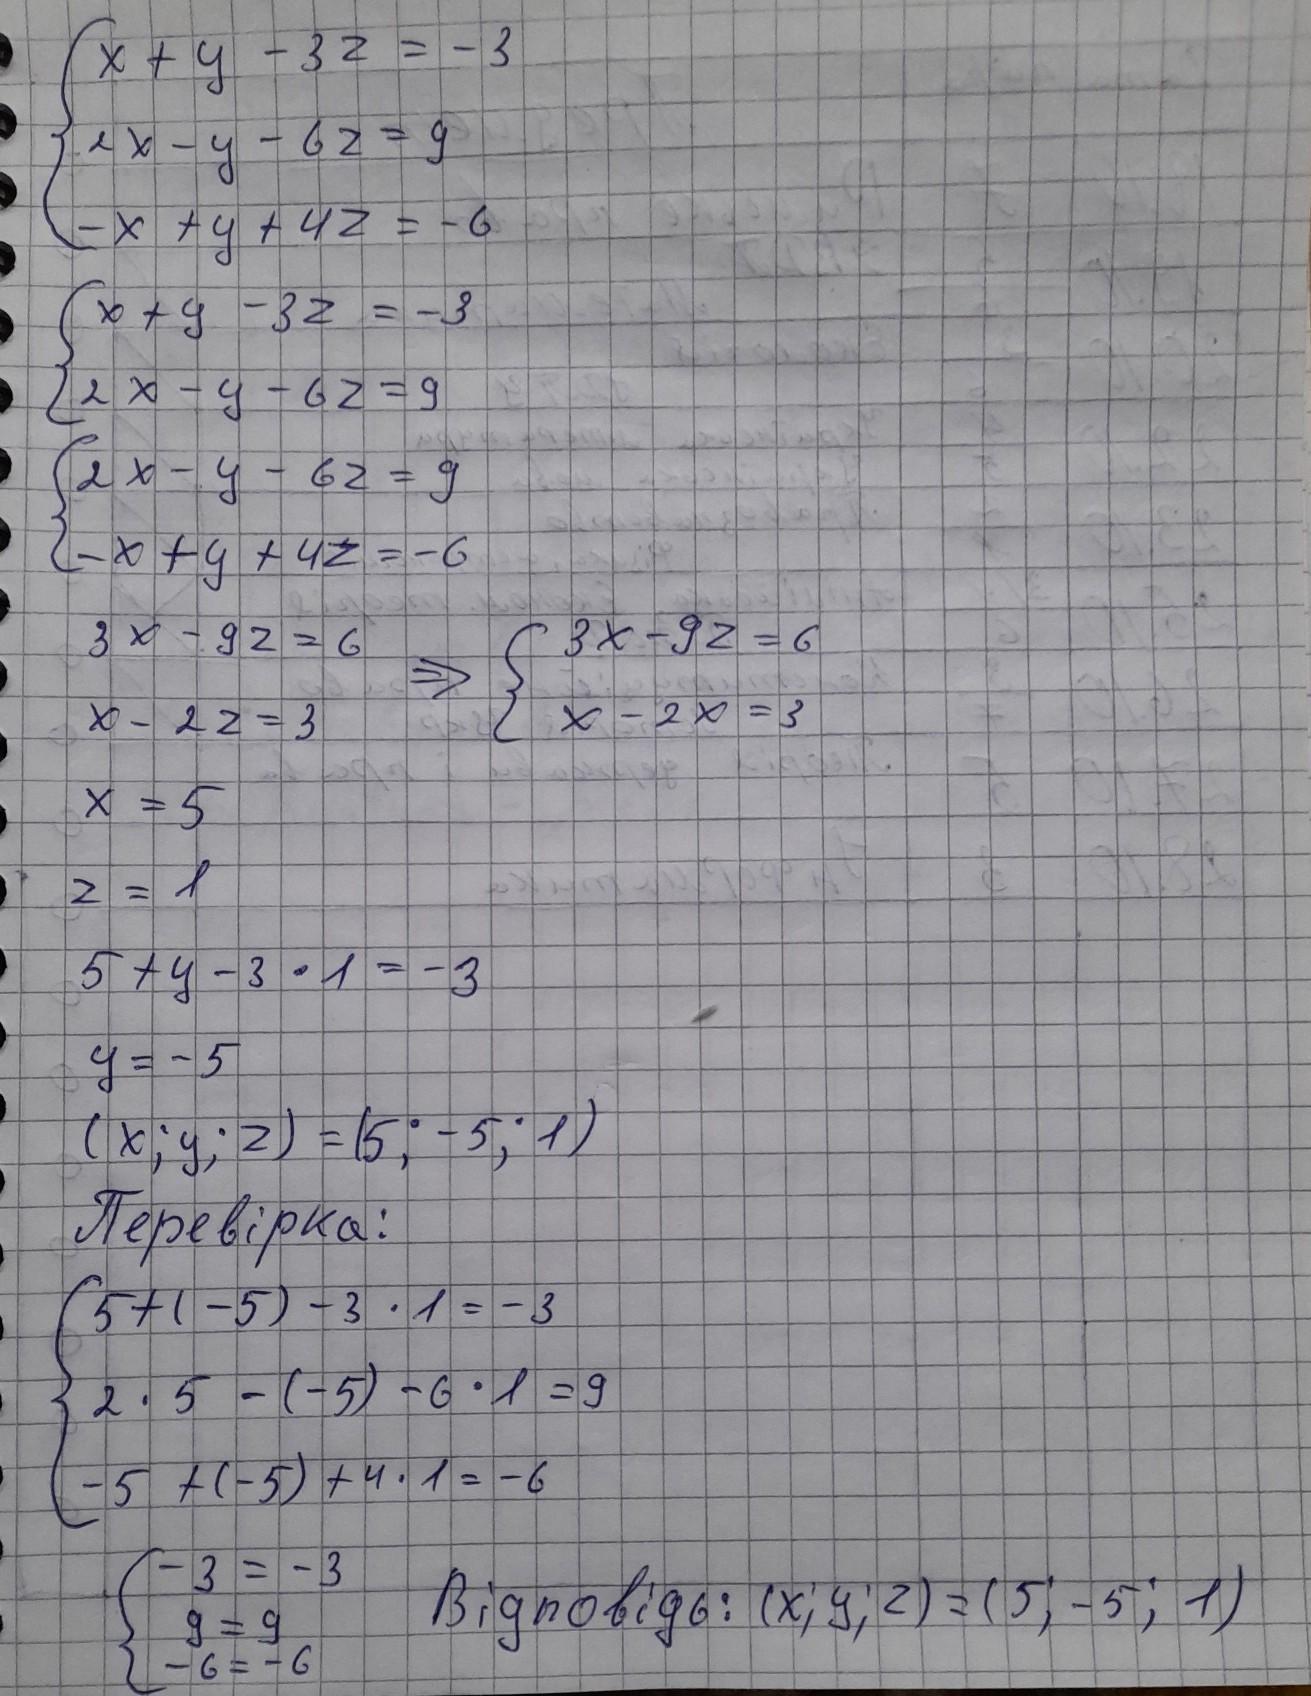 x + y - 3z = -3
2x - y - 6z = 9
-x + y + 4z = -6
x + y - 3z = -3
2x - y - 6z = 9
2x - y - 6z = 9
-x + y + 4z = -6
3x - 9z = 6 ⇒ 3x - 9z = 6
x - 2z = 3 x - 2x = 3
x = 5
z = 1
5 + y - 3 · 1 = -3
y = -5
(x; y; z) = (5; -5; 1)
Перевірка:
5 + (-5) - 3 · 1 = -3
2 · 5 - (-5) - 6 · 1 = 9
-5 + (-5) + 4 · 1 = -6
-3 = -3
9 = 9
-6 = -6
Відповідь: (x; y; z) = (5; -5; 1)